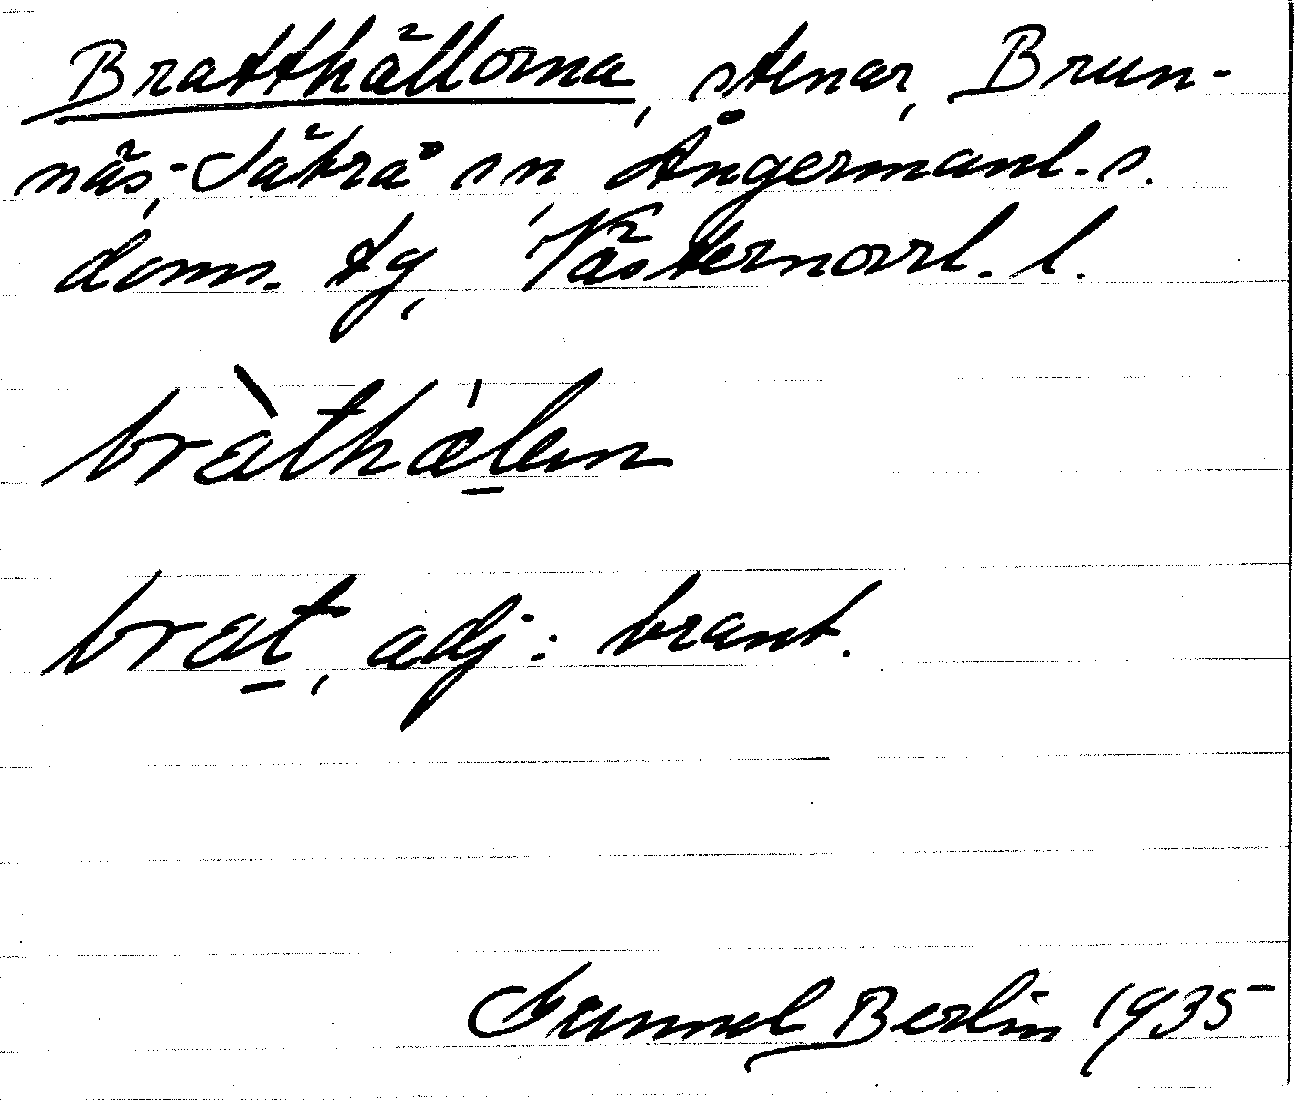 Bratthällorna, stenar, Brun-
näs, Säbrå sn, Ångermanl. s.
doms. tg, Västernorrl. l.
bràthǽlen
brat, adj: brant.
Gunnel Berlin 1935